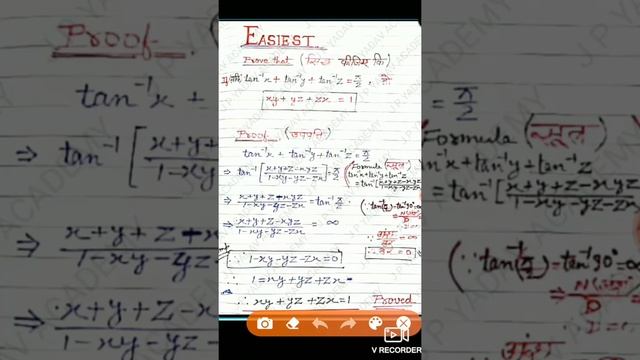 EASIEST
Prove that (सिद्ध कीजिए कि)
यदि tan⁻¹x + tan⁻¹y + tan⁻¹z = π/2, तो
xy + yz + zx = 1
Proof (उपपत्ति)
tan⁻¹x + tan⁻¹y + tan⁻¹z = π/2
⇒ tan⁻¹[(x+y+z-xyz)/(1-xy-yz-zx)] = π/2
(Formula (सूत्र)
tan⁻¹x+tan⁻¹y+tan⁻¹z
= tan⁻¹[(x+y+z-xyz)/(1-xy-yz-zx)]
⇒ (x+y+z-xyz)/(1-xy-yz-zx) = tan⁻¹ π/2
⇒ (x+y+z-xyz)/(1-xy-yz-zx) = ∞
= ∞
∴ हर = 0
∴ 1-xy-yz-zx = 0
∴ 1 = xy + yz + zx
∴ xy + yz + zx = 1 Proved
V RECORDER
Proof
tan⁻¹x +
⇒ tan⁻¹[x+y+
1-xy
⇒ x+y+z-x
1-xy-yz
⇒ x+y+z-x
1-xy-yz
= π/2
Formula (सूत्र)
tan⁻¹x+tan⁻¹y+tan⁻¹z
= tan⁻¹[(x+y+z-xyz)/(1-xy-yz-zx)]
J P YADAV ACADEMY